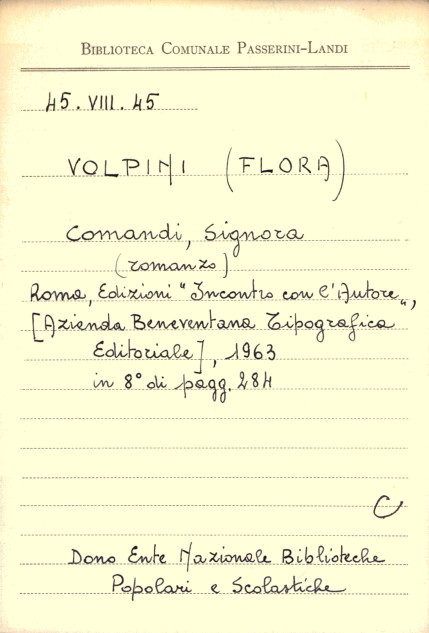 BIBLIOTECA COMUNALE PASSERINI-LANDI
45.VIII.45
VOLPINI (FLORA)
Comandi, Signora
(romanzo)
Roma, Edizioni "Incontro con l'Autore",
[Azienda Beneventana Tipografica
Editoriale], 1963
in 8° di pagg. 284
C
Dono Ente Nazionale Biblioteche
Popolari e Scolastiche